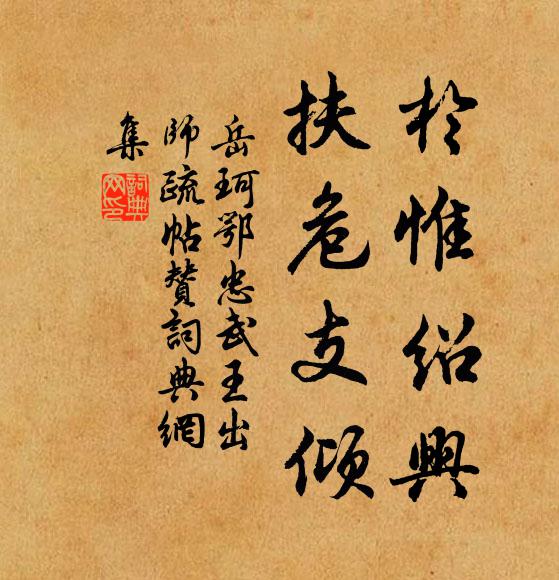 於惟紹興
扶危支傾
岳珂鄂忠武王出
師疏帖贊詞典網
集
詞典网印